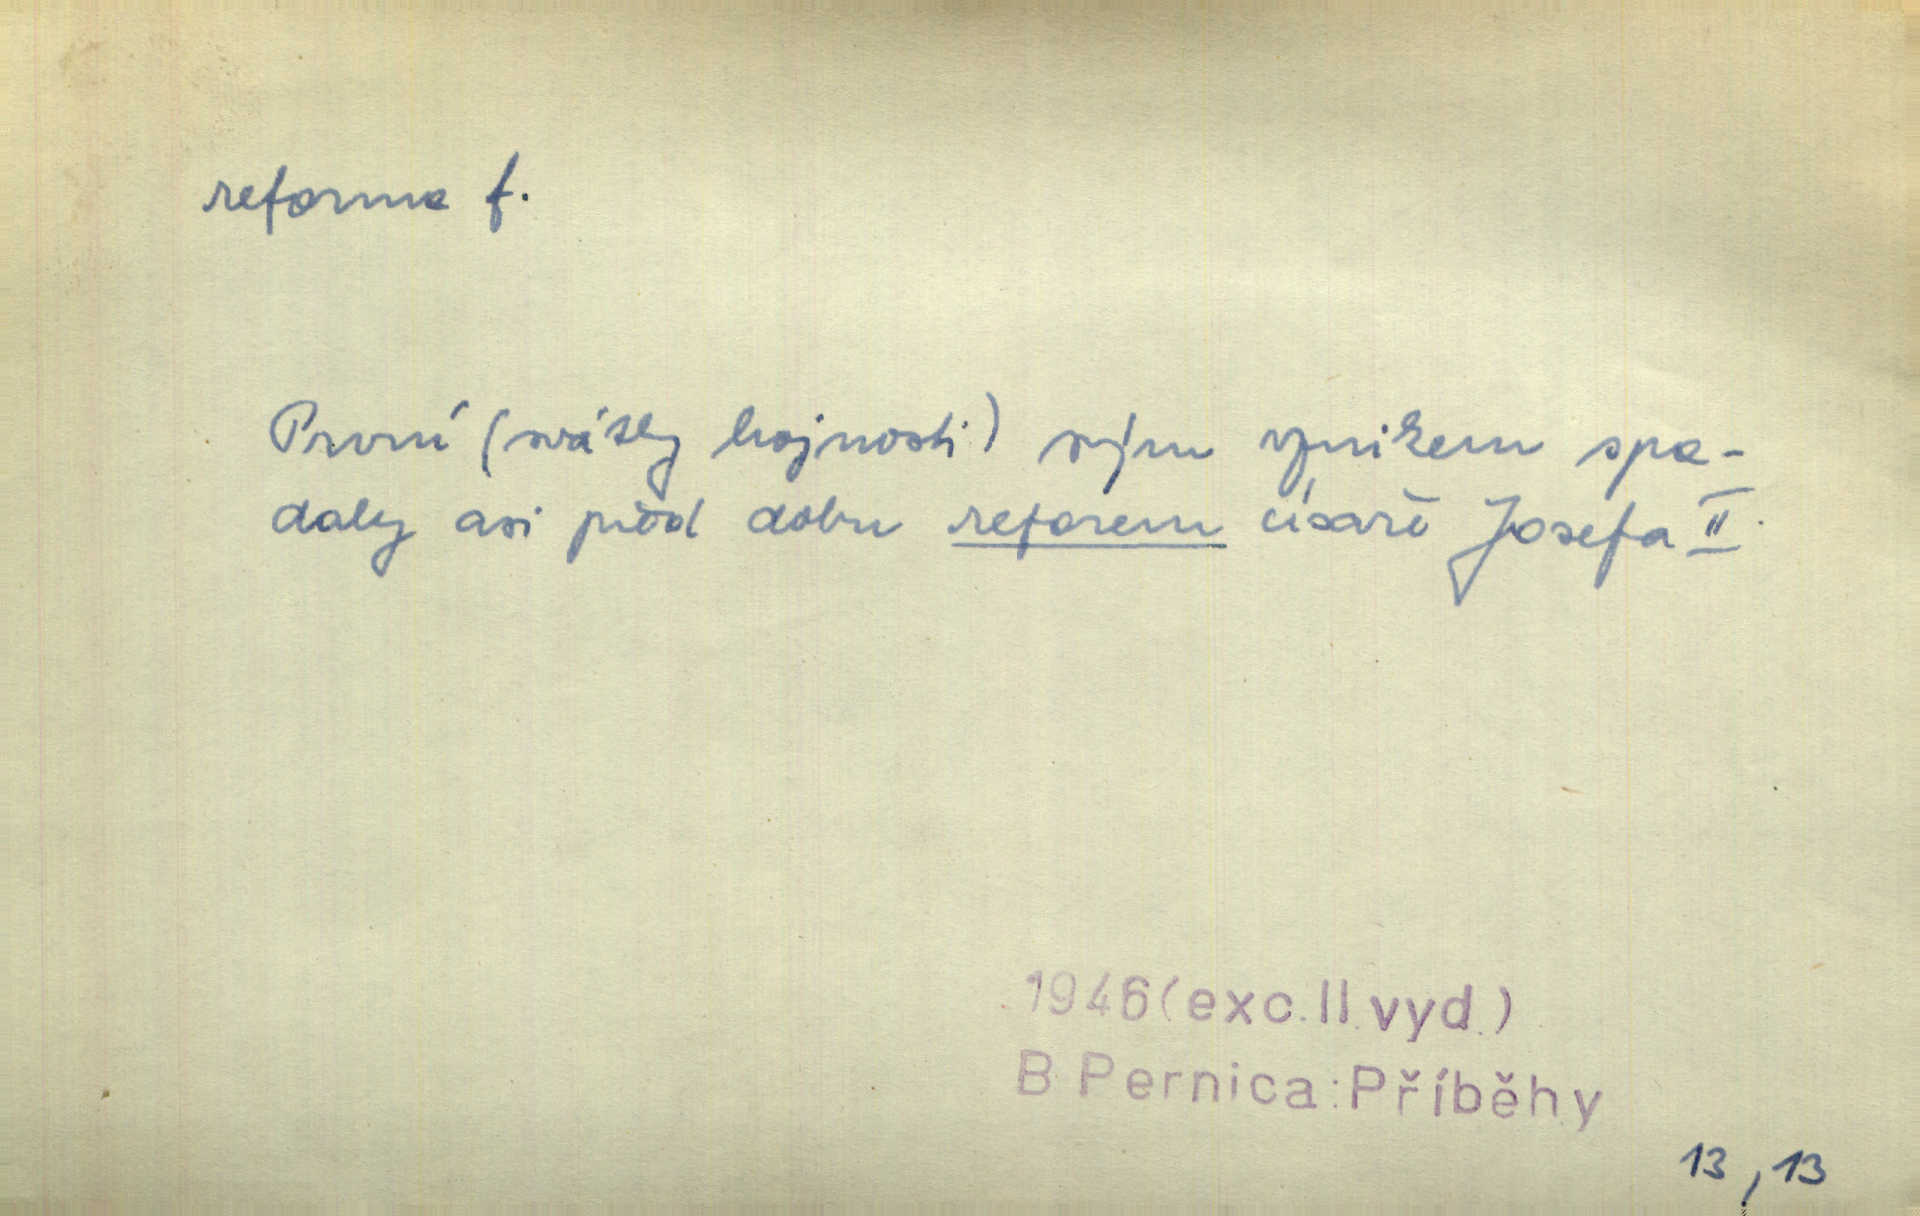 reforma f.
První (svátky hojnosti) svým vznikem spa-
daly asi před dobu reforem císaře Josefa II.
1946(exc. II. vyd.)
B. Pernica: Příběhy
13, 13